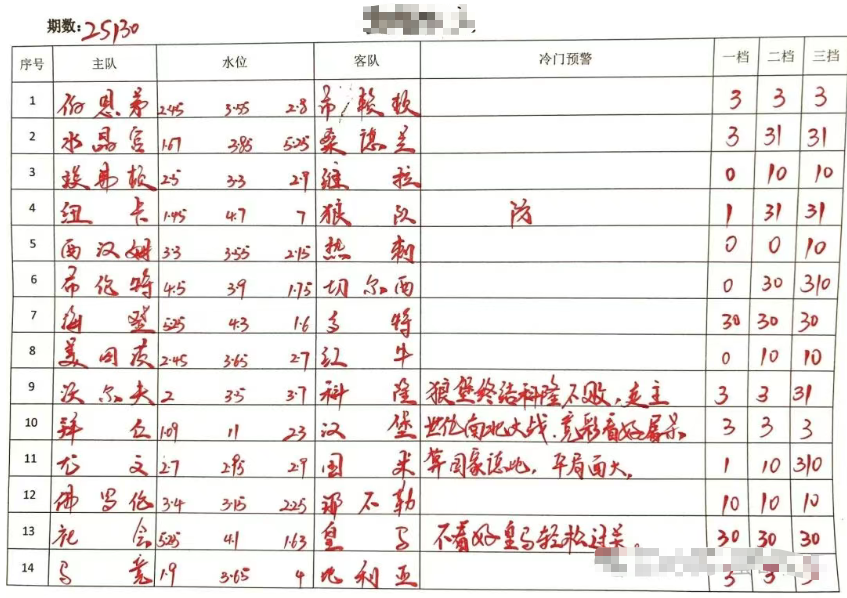 期数:25130
序号 主队 水位 客队 冷门预警 一档 二档 三挡
1 伯恩茅 2.45 3.55 2.8 布赖顿 3 3 3
2 水晶宫 1.67 3.85 5.25 桑德兰 3 31 31
3 埃弗顿 2.5 3.3 2.9 维拉 0 10 10
4 纽卡 1.45 4.7 7 狼队 防 1 31 31
5 西汉姆 3.3 3.55 2.15 热刺 0 0 10
6 布伦特 4.5 3.9 1.75 切尔西 0 30 310
7 海登 5.25 4.3 1.6 多特 30 30 30
8 美因茨 2.45 3.65 2.7 红牛 0 10 10
9 沃尔夫 2 3.5 3.7 科隆 狼堡终结科隆不败,走主 3 3 31
10 拜仁 1.09 11 23 汉堡 世纪南北大战,竞彩看好屠杀 3 3 3
11 尤文 2.7 2.95 2.9 国米 算国豪德比,平局面大。 1 10 310
12 佛罗伦 3.4 3.15 2.25 那不勒 10 10 10
13 社会 5.25 4.1 1.63 皇马 不看好皇马轻松过关。 30 30 30
14 马竞 1.9 3.65 4 比利亚 3 3 3